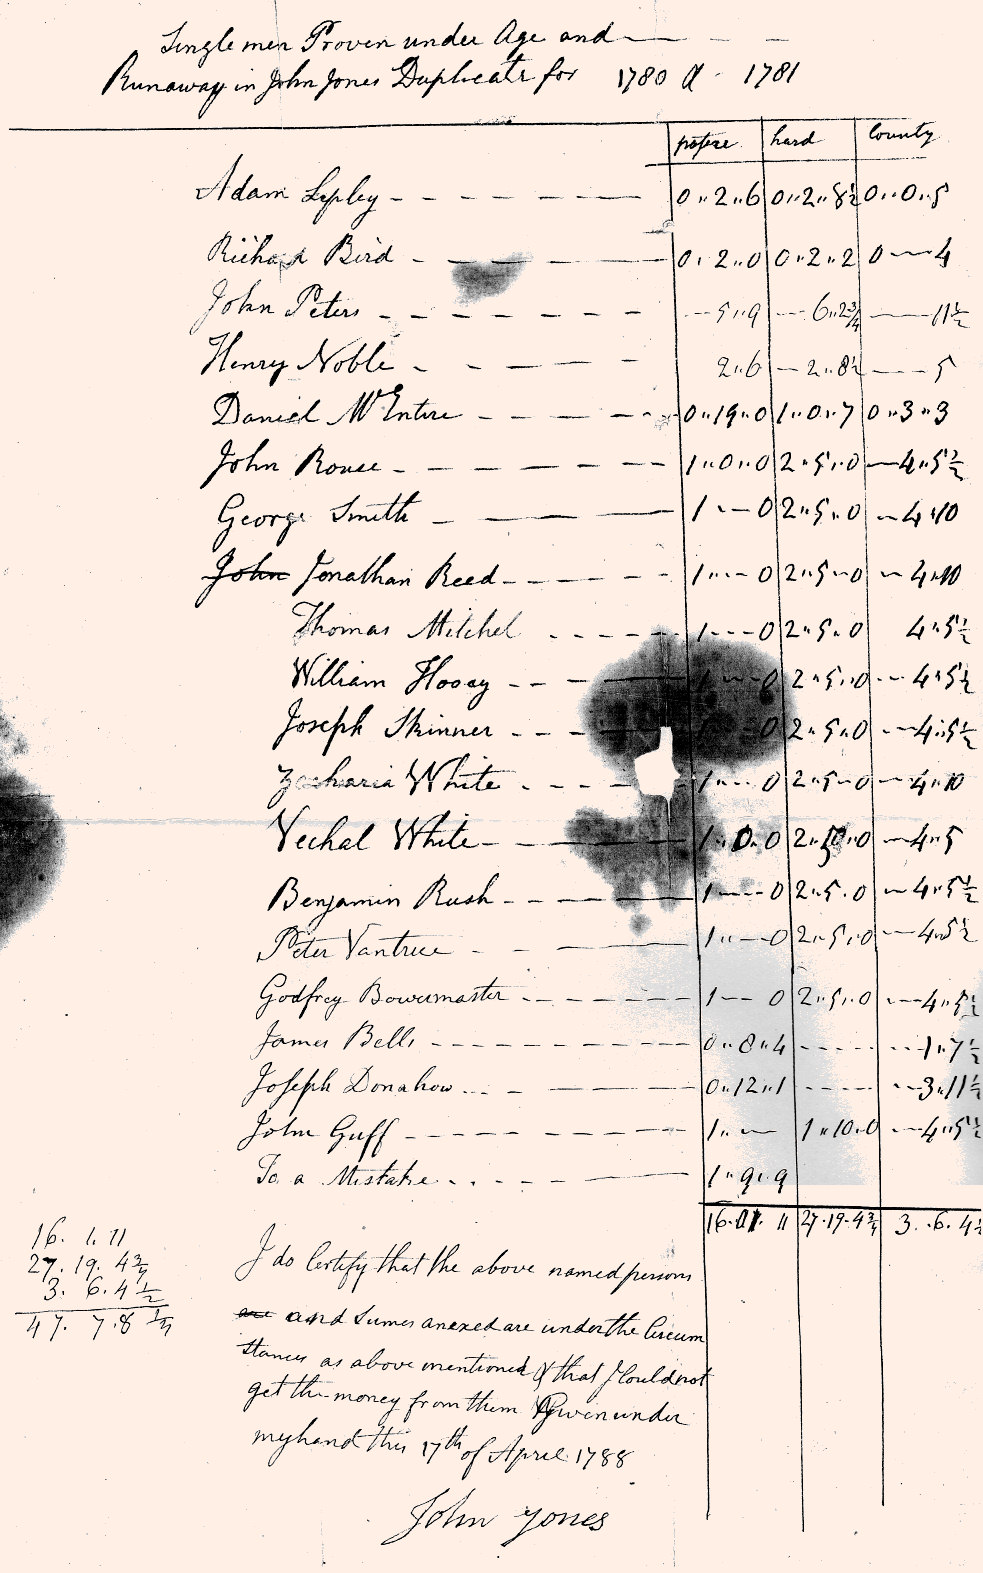 Singlemen Proven under Age and
Runaway in John Jones Duplicate for 1780 & 1781
hard county
Adam Lepley 0 " 2 " 6 0 " 2 " 8½ 0 " 0 " 5
Richard Bird 0 " 2 " 0 0 " 2 " 2 0 — 4
John Peters — 5 " 9 — 6 " 2¾ — 11½
Henry Noble 2 " 6 — 2 " 8½ — 5
Daniel McEntire 0 " 19 " 0 1 " 0 " 7 0 " 3 " 3
John 1 " 0 " 0 2 " 5 " 0 — 4 " 5½
George Smith 1 " — 0 2 " 5 " 0 — 4 " 10
John Jonathan Reed 1 " — 0 2 " 5 — 0 — 4 " 10
Thomas Mitchel 1 — 0 2 " 5 " 0 4 " 5½
William 1 " — 0 2 " 5 " 0 — 4 " 5½
Joseph Skinner 1 — 0 2 " 5 " 0 — 4 " 5½
Zacharia White 1 " — 0 2 " 5 — 0 — 4 " 10
Vechal White 1 " 0 " 0 2 " " 0 — 4 " 5
Benjamin Rush 1 — 0 2 " 5 . 0 — 4 " 5½
Peter Vantree 1 " — 0 2 " 5 " 0 — 4 " 5½
Godfrey Bowermaster 1 — 0 2 " 5 " 0 — 4 " 5½
James Bells 0 " 8 " 4 — 1 " 7½
Joseph Donahow 0 " 12 " 1 — 3 " 11½
John Guff 1 " — 1 " 10 " 0 — 4 " 5½
To a Mistake 1 " 9 " 9
16 . 01 . 11 27 . 19 . 4¾ 3 . 6 . 4½
16 . 1 . 11
27 . 19 . 4¾
3 . 6 . 4½
47 . 7 . 8 ¼
I do Certify that the above named persons
are and Sumes anexed are under the Circum
stances as above mentioned & that I Could not
get the money from them Given under
my hand this 17th of April 1788
John Jones